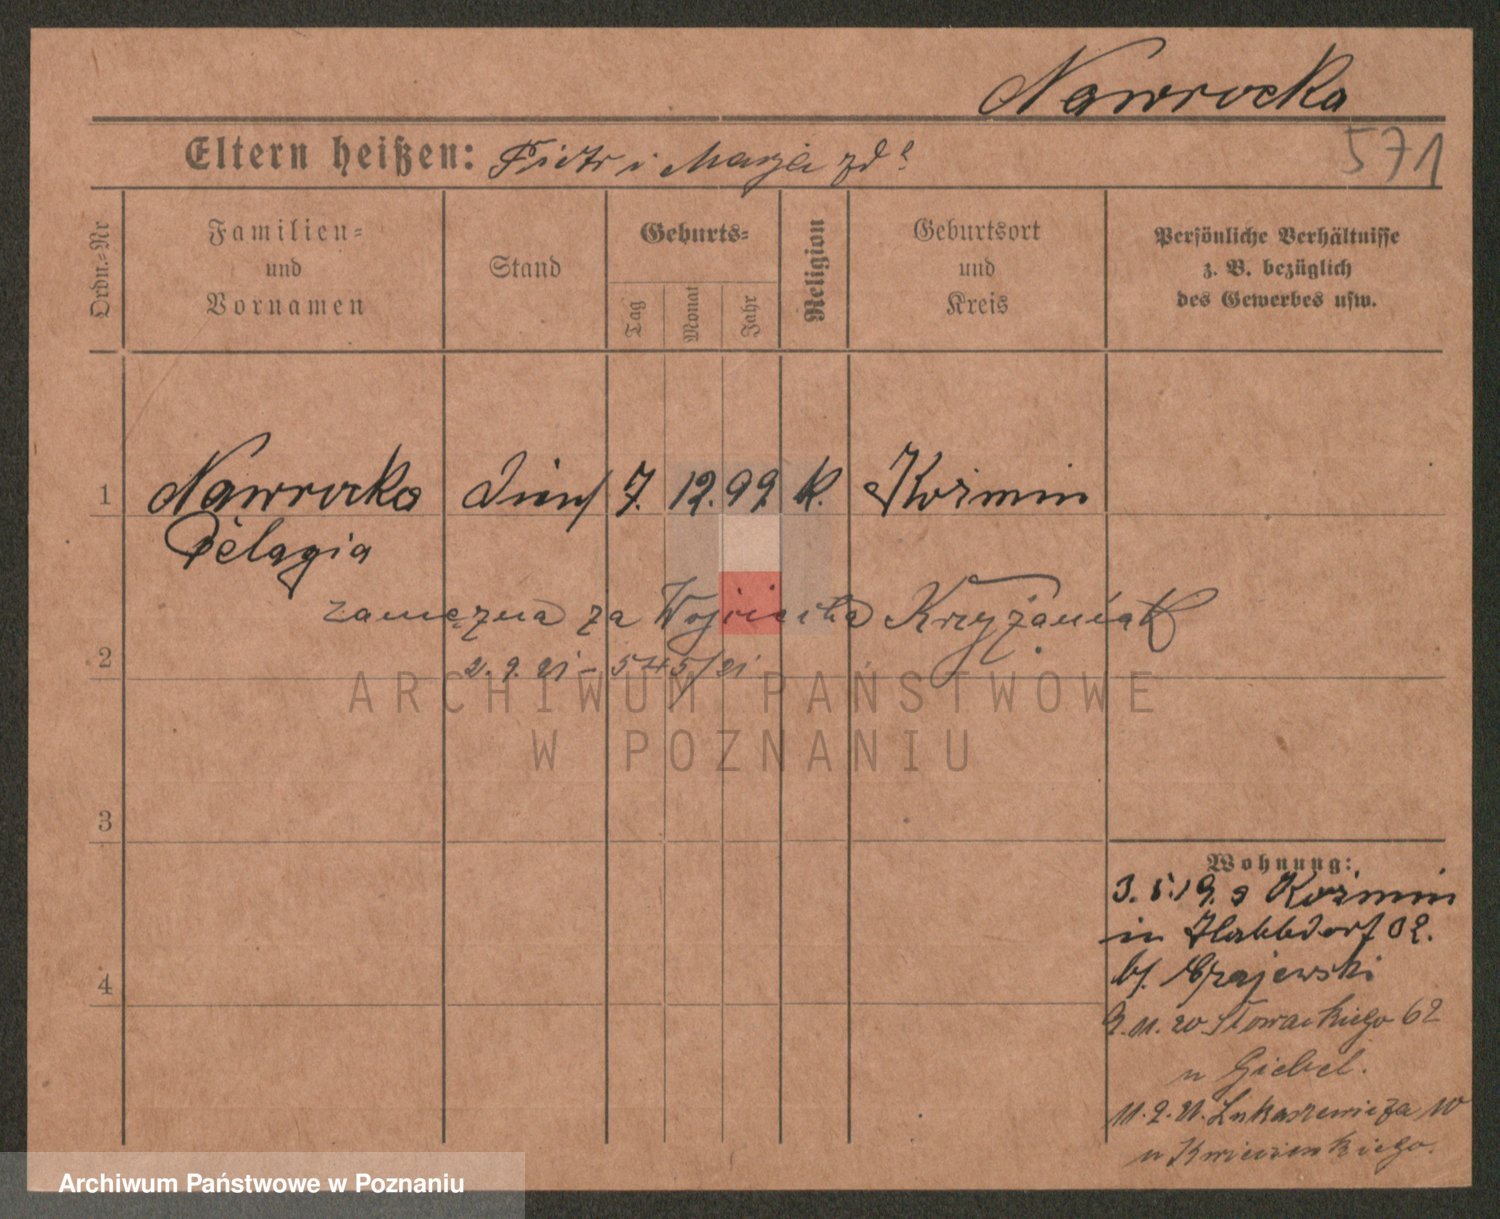 Nawrocka
571
Eltern heißen: Piotr i Marja zd
Ordn.-Nr
Familien-
und
Vornamen
Stand
Geburts-
Tag
Monat
Jahr
Religion
Geburtsort
und
Kreis
Persönliche Verhältnisse
z. B. bezüglich
des Gewerbes usw.
1 Nawrocka 7. 12. 99 k. Kozmin
Pelagia
zamężna za Wojciecha Krzyżaniak
2 2. 9. 21 - 5745/21
ARCHIWUM PAŃSTWOWE
W POZNANIU
3
4
Wohnung:
3. 5. 19. Kozmin
in
b/.
9. 11. 20 Słowackiego 62
u Giebel.
11. 2. 21. Łukaszewicza 10
u
Archiwum Państwowe w Poznaniu